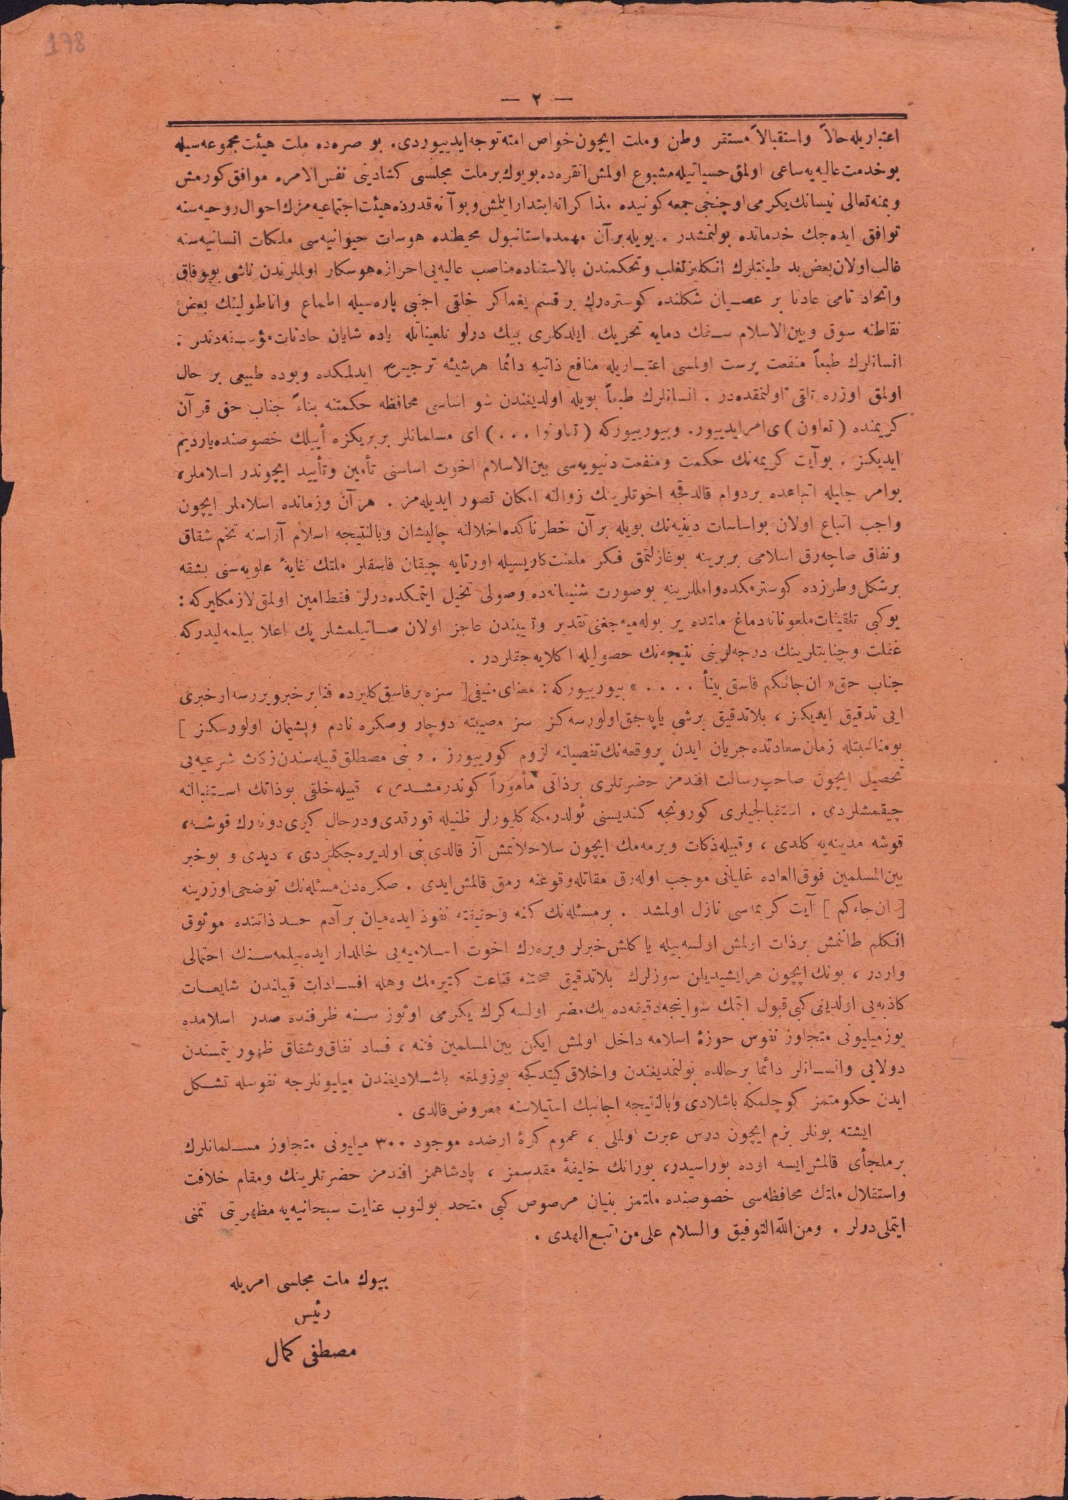 178
— ٢ —
اعتباریله حالاً واستقبالاً مستقر وطن وملت ایچون خواص امته توجه ایدییوردی. بو صره ده ملت هیئت مجموعه سیله
بوخدمت عالیه یه ساعی اولمق حسیاتیله مشبوع اولمش انقره ده بویوك بر ملت مجلسی کشادینی نفس الامره موافق کورمش
وبمنه تعالی نیسانك یکرمی اوچنجی جمعه کونیده مذاکراته ابتدار ایلمش وبو آنه قدرده هیئت اجتماعیه مزك احوال روحیه سنه
توافق ایده جك خدماتده بولنمشدر . بویله برآن مهمده استانبول محیطنده هوسات حیوانیه سی ملکات انسانیه سنه
غالب اولان بعض بد طینتلرك انکلیز تغلب وتحکمندن بالاستفاده مناصب عالیه یی احرازه هوسکار اولملرندن ناشی بو وفاق
واتحاد تامی عادتا بر عصیان شکلنده کوستره رك بر قسم یغماکر خلقی اجنبی پاره سیله اطماع واناطولینك بعض
نقاطنه سوق وبین الاسلام سفك دمایه تحریك ایلدکلری بیك درلو تلعیناتله یاده شایان حادثات مؤسفه دندر :
انسانلرك طبعاً منفعت پرست اولمسی اعتباریله منافع ذاتیه دائما هرشیئه ترجیح ایدلمکده وبوده طبیعی بر حال
اولمق اوزره تلقی اولنمقده در . انسانلرك طبعاً بویله اولدیغندن شو اساسی محافظه حکمتنه بناءً جناب حق قرآن
کریمنده ( تعاون ) ی امر ایدییور. وبیورییورکه ( تعاونوا ... ) ای مسلمانلر بربریکزه اییلك خصوصنده یاردیم
ایدیکز . بوآیت کریمه نك حکمت ومنفعت دنیویه سی بین الاسلام اخوت اساسنی تأمین وتأیید ایچوندر اسلاملر،
بوامر جلیله اتباعده بردوام قالدقجه اخوتلرینك زوالنه امکان تصور ایدیله مز . هر آن وزمانده اسلاملر ایچون
واجب اتباع اولان بواساسات دینیه نك بویله برآن خطرناکده اخلالنه چالیشان وبالنتیجه اسلام آراسنه تخم شقاق
ونفاق صاچه رق اسلامی بربرینه بوغازلتمق فکر ملعنت کاریسیله اورتایه چیقان فاسقلر ملتك غایۀ علویه سنی بشقه
برشکل وطرزده کوسترمکده واملارینه بوصورت شنیعانه ده وصولی تخیل ایتمکده درلر فقط امین اولمق لازمکلیرکه :
بوکبی تلقینات ملعونانه دماغ ملتده یر بوله میه جغنی تقدیر وتمییزدن عاجز اولان صاتیلمشلر پك اعلا بیلمه لیدرکه
غفلت وجنایتلرینك درجه لرینی نتیجه نك حصولیله اکلایه جقلردر .
جناب حق « ان جائکم فاسق بنبأ .... » بیورییورکه : معنای منیفی [ سزه بر فاسق کلیرده فنا بر خبر ویررسه او خبری
ایی تدقیق ایدیکز ، بلاتدقیق برشی یاپه جق اولورسه کز سز مصیبته دوچار وصکره نادم وپشیمان اولورسکز ]
بومناسبتله زمان سعادتده جریان ایدن بروقعه نك تفصیلنه لزوم کورییورز . بنی مصطلق قبیله سندن زکات شرعیه یی
تحصیل ایچون صاحب رسالت افندمز حضرتلری بر ذاتی مأموراً کوندرمشدی ، قبیله خلقی بوذاتك استقبالنه
چیقمشلردی . استقبالجیلری کورونجه کندیسنی ئولدرمکه کلیورلر ظنیله قورقدی ودرحال کری دونه رك قوشه،
قوشه مدینه یه کلدی ، وقبیله زکات ویرمه مك ایچون سلاحلانمش آز قالدی بنی اولدیره جکلردی ، دیدی و بوخبر
بین المسلمین فوق العاده غلیانی موجب اوله رق مقاتله وقوعنه رمق قالمش ایدی . صکره دن مسئله نك توضحی اوزرینه
[ ان جاءکم ] آیت کریمه سی نازل اولمشدر . بر مسئله نك کنه وحقیقته نفوذ ایده میان بر آدم حد ذاتنده موثوق
الکلم طانمش بر ذات اولمش اولسه بیله یاکلش خبرلر ویره رك اخوت اسلامیه یی خللدار ایده بیلمه سنك احتمالی
واردر ، بونك ایچون هر ایشیدیلن سوزلرك بلاتدقیق صحتنه قناعت کتیرمك وهله افسادات قبیلندن شایعات
کاذبه یی اولدیغی کبی قبول ایتمك نه درجه ده مضر اولسه کرك یکرمی اوتوز سنه ظرفنده صدر اسلامده
یوز میلیونی متجاوز نفوس حوزۀ اسلامه داخل اولمش ایکن بین المسلمین فتنه ، فساد نفاق وشقاق ظهور ایتمسندن
دولایی وانسانلر دائما بر حالده بولنمدیغندن واخلاق کیتدکجه بوزولمغه باشلادیغندن میلیونلرجه نفوسله تشکل
ایدن حکومتمز کوچلمکه باشلادی وبالنتیجه اجانبك استیلاسنه معروض قالدی .
ایشته بونلر بزم ایچون درس عبرت اولملی ، عموم کرۀ ارضده موجود ٣٠٠ میلیونی متجاوز مسلمانلرك
بر ملجأی قالمش ایسه اوده بوراسیدر، بورانك خلیفۀ مقدسمز ، پادشاهمز افندمز حضرتلرینك ومقام خلافت
واستقلال ملتك محافظه سی خصوصنده ملتمز بنیان مرصوص کبی متحد بولنوب عنایت سبحانیه یه مظهریتی تمنی
ایتملی درلر . ومن الله التوفیق والسلام علی من اتبع الهدی .
بیوك ملت مجلسی امریله
رئیس
مصطفی کمال